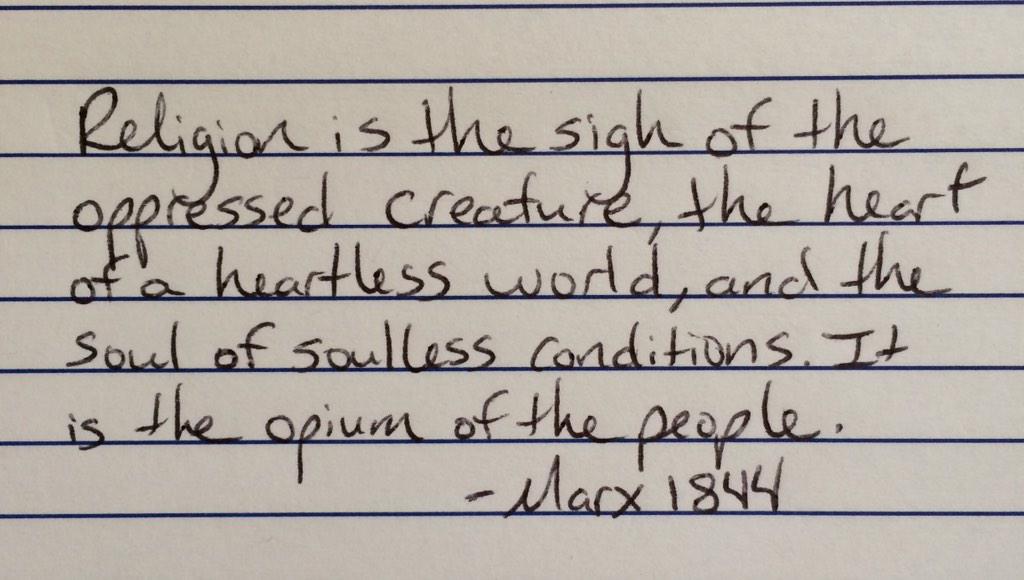 Religion is the sigh of the
oppressed creature, the heart
of a heartless world, and the
soul of soulless conditions. It
is the opium of the people.
-Marx 1844